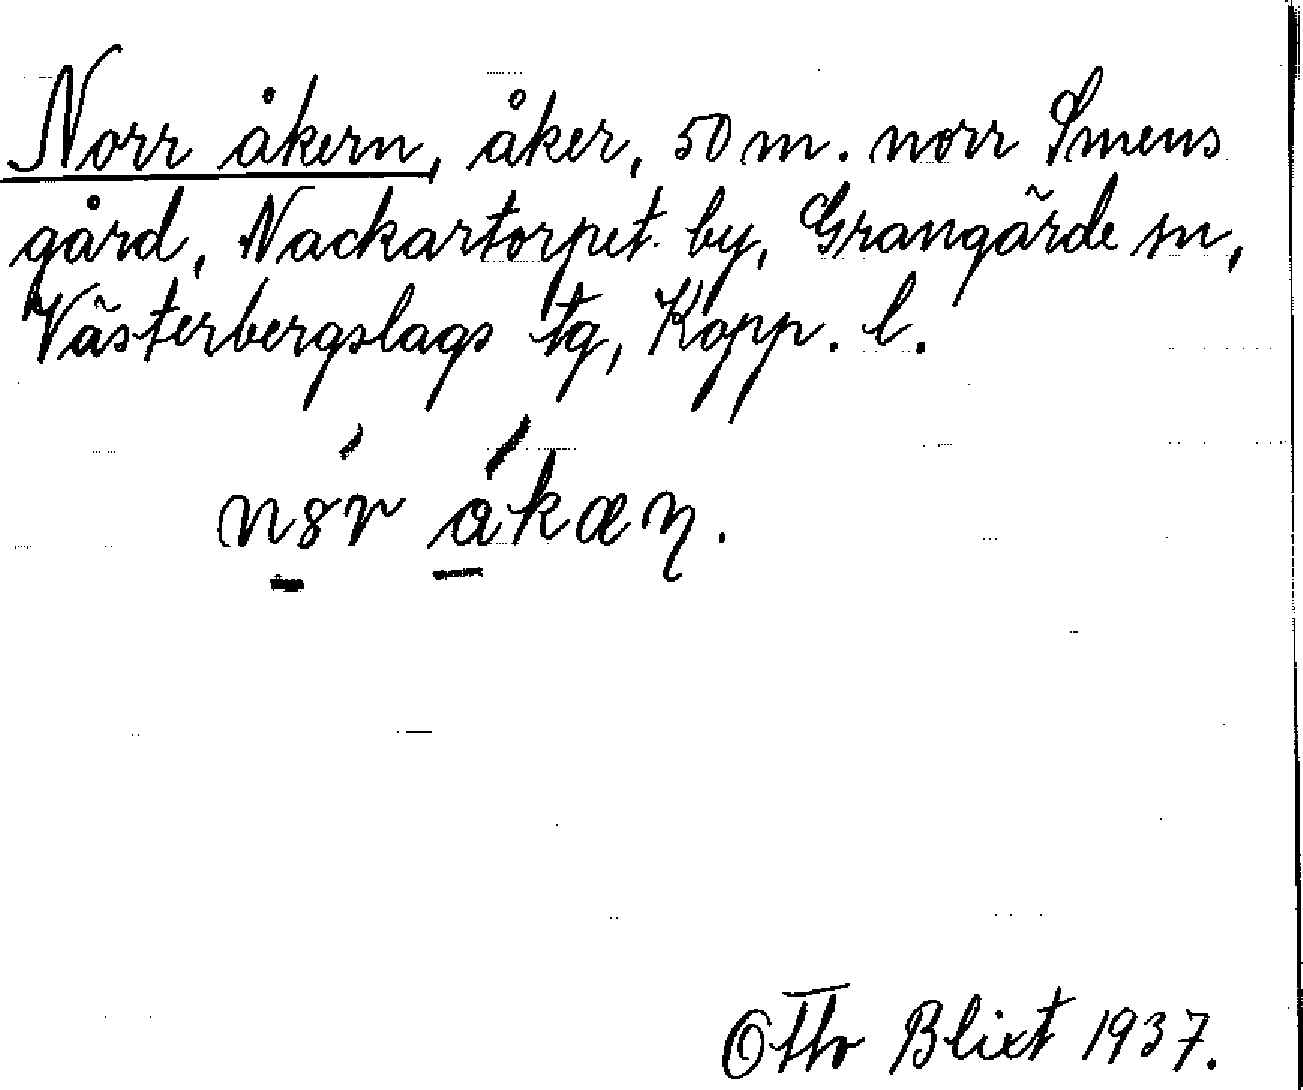 Norr åkern, åker, 50 m. norr Smens
gård, Nackartorpet by, Grangärde sn,
Västerbergslags tg, Kopp. l.
nȣ́r ǻkæɳ.
Otto Blixt 1937.